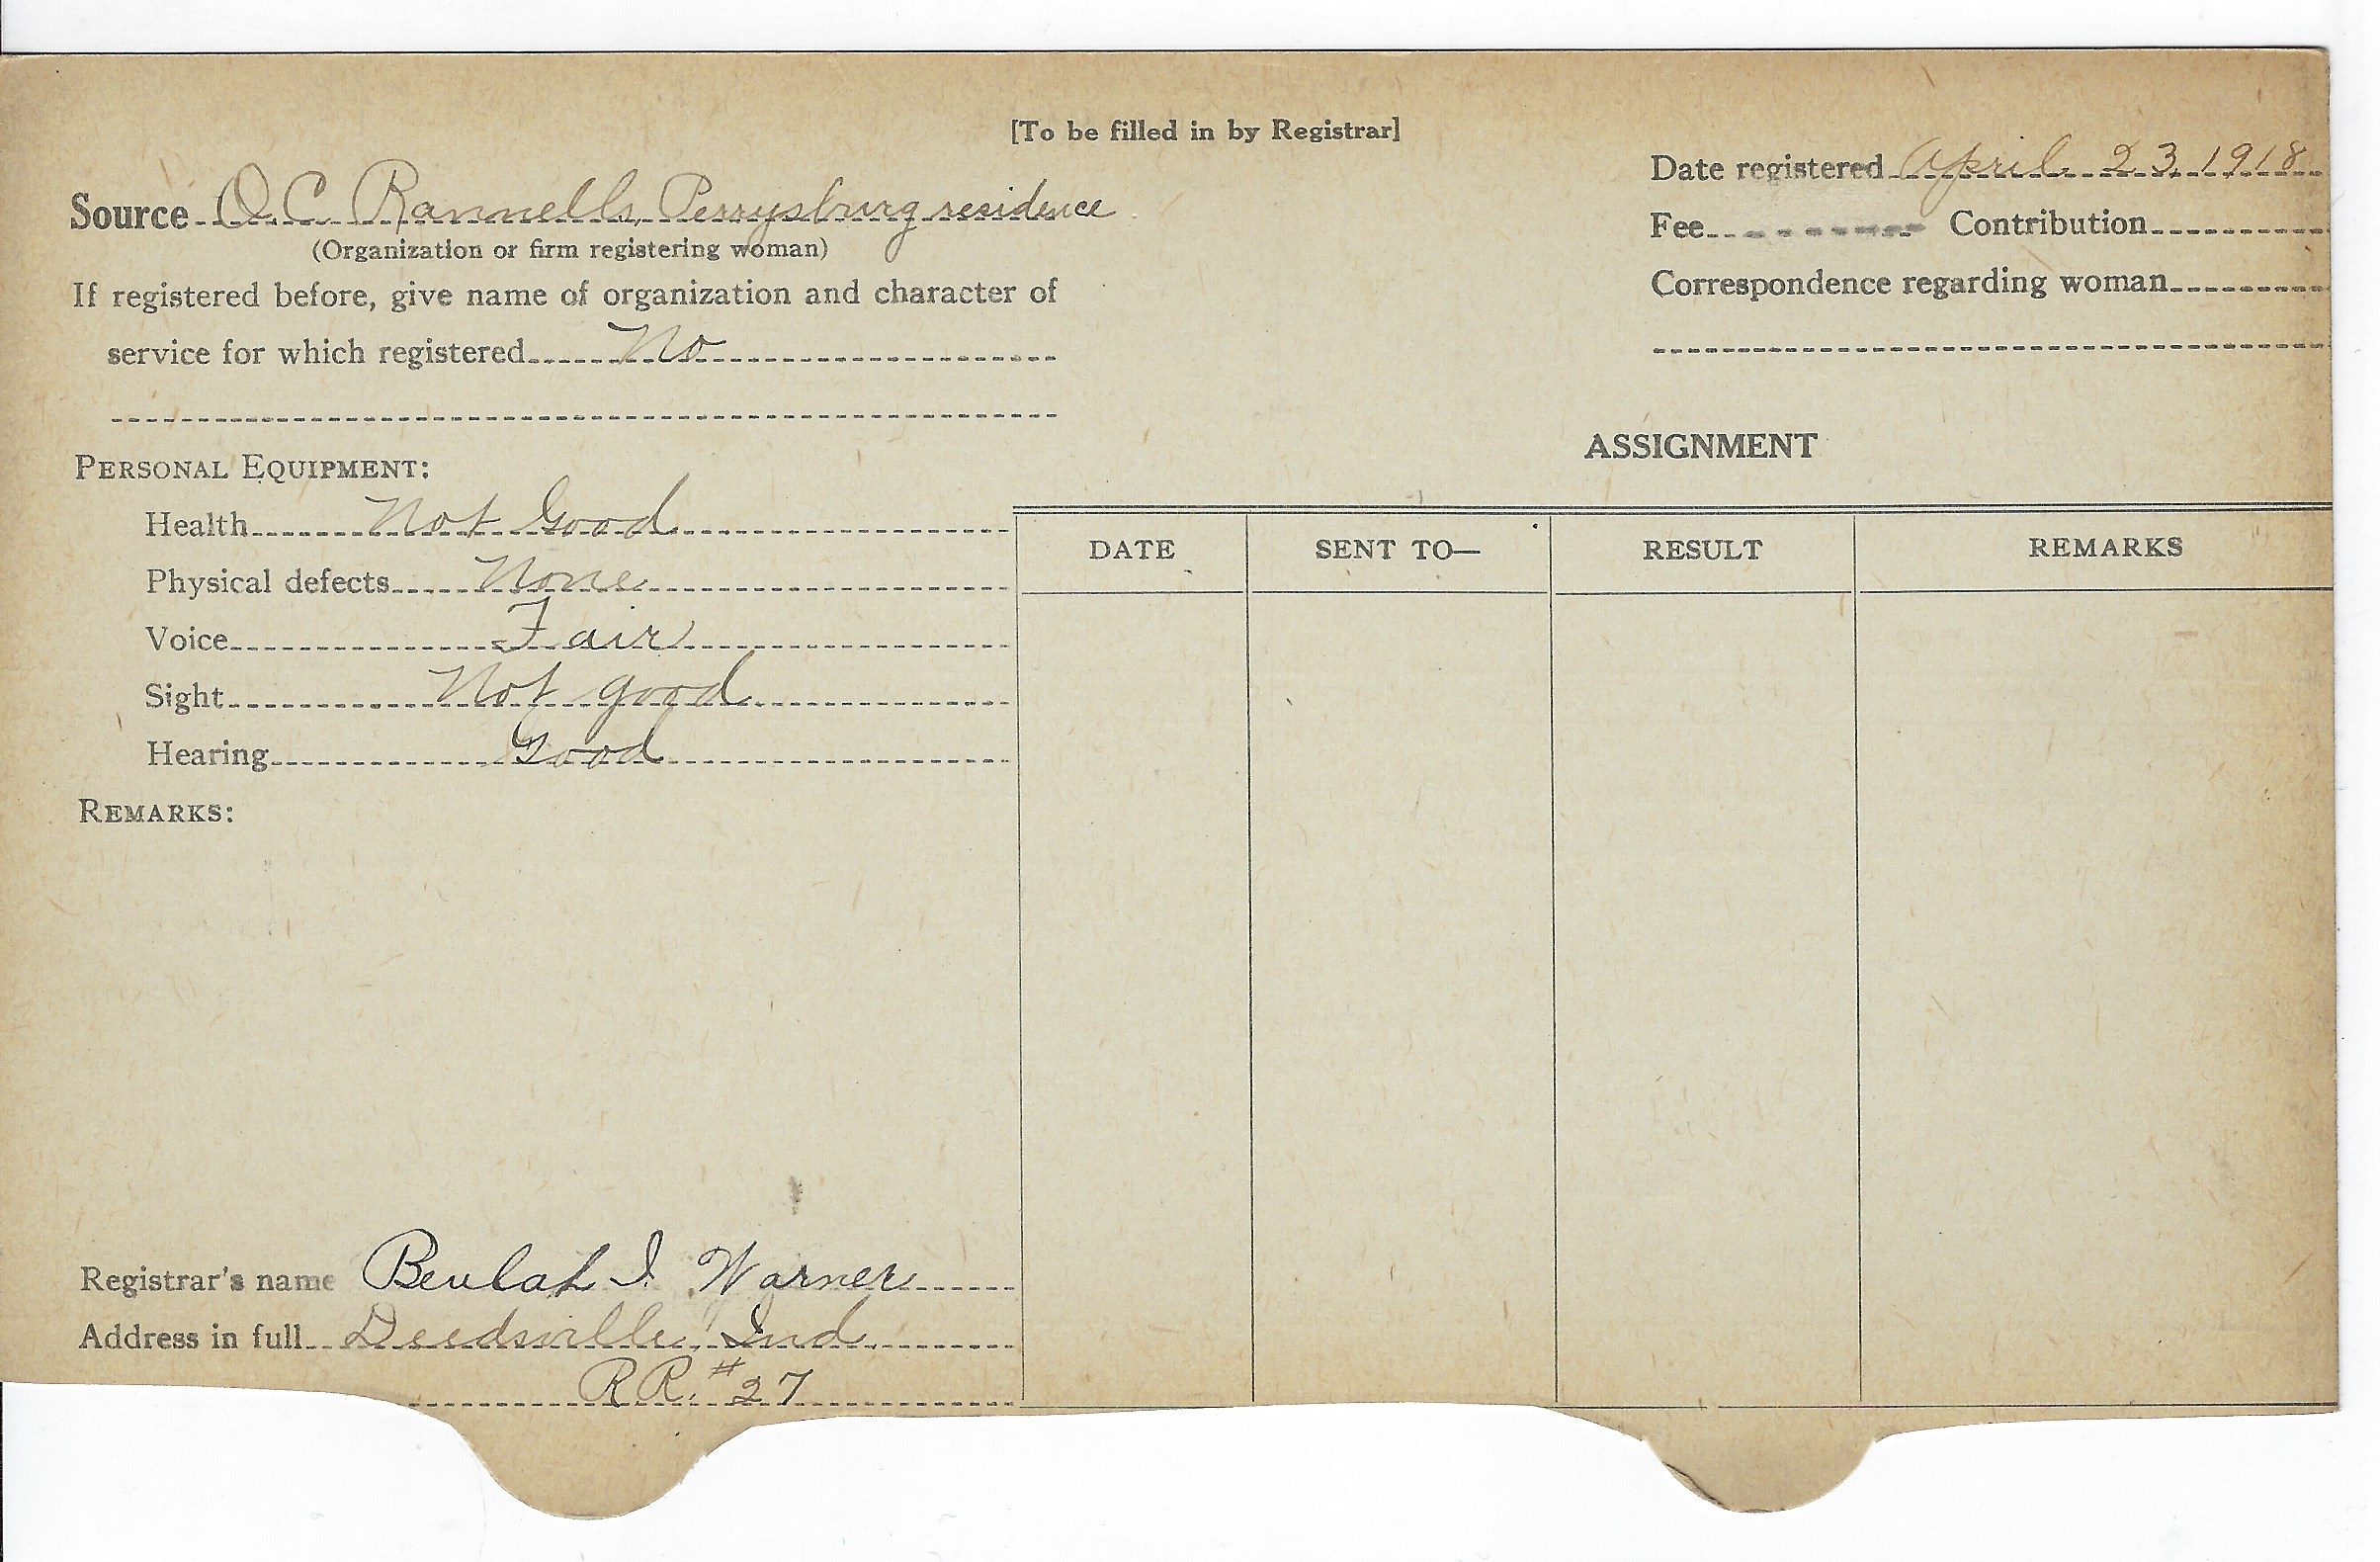 [To be filled in by Registrar]
Date registered April 23, 1918
Source O.C. Rannells, Perrysburg residence
(Organization or firm registering woman)
Fee Contribution
If registered before, give name of organization and character of
Correspondence regarding woman
service for which registered No
ASSIGNMENT
PERSONAL EQUIPMENT:
Health Not Good
DATE SENT TO— RESULT REMARKS
Physical defects None
Voice Fair
Sight Not good
Hearing Good
REMARKS:
Registrar's name Beulah I. Warner
Address in full Deedsville, Ind.
R.R. #27